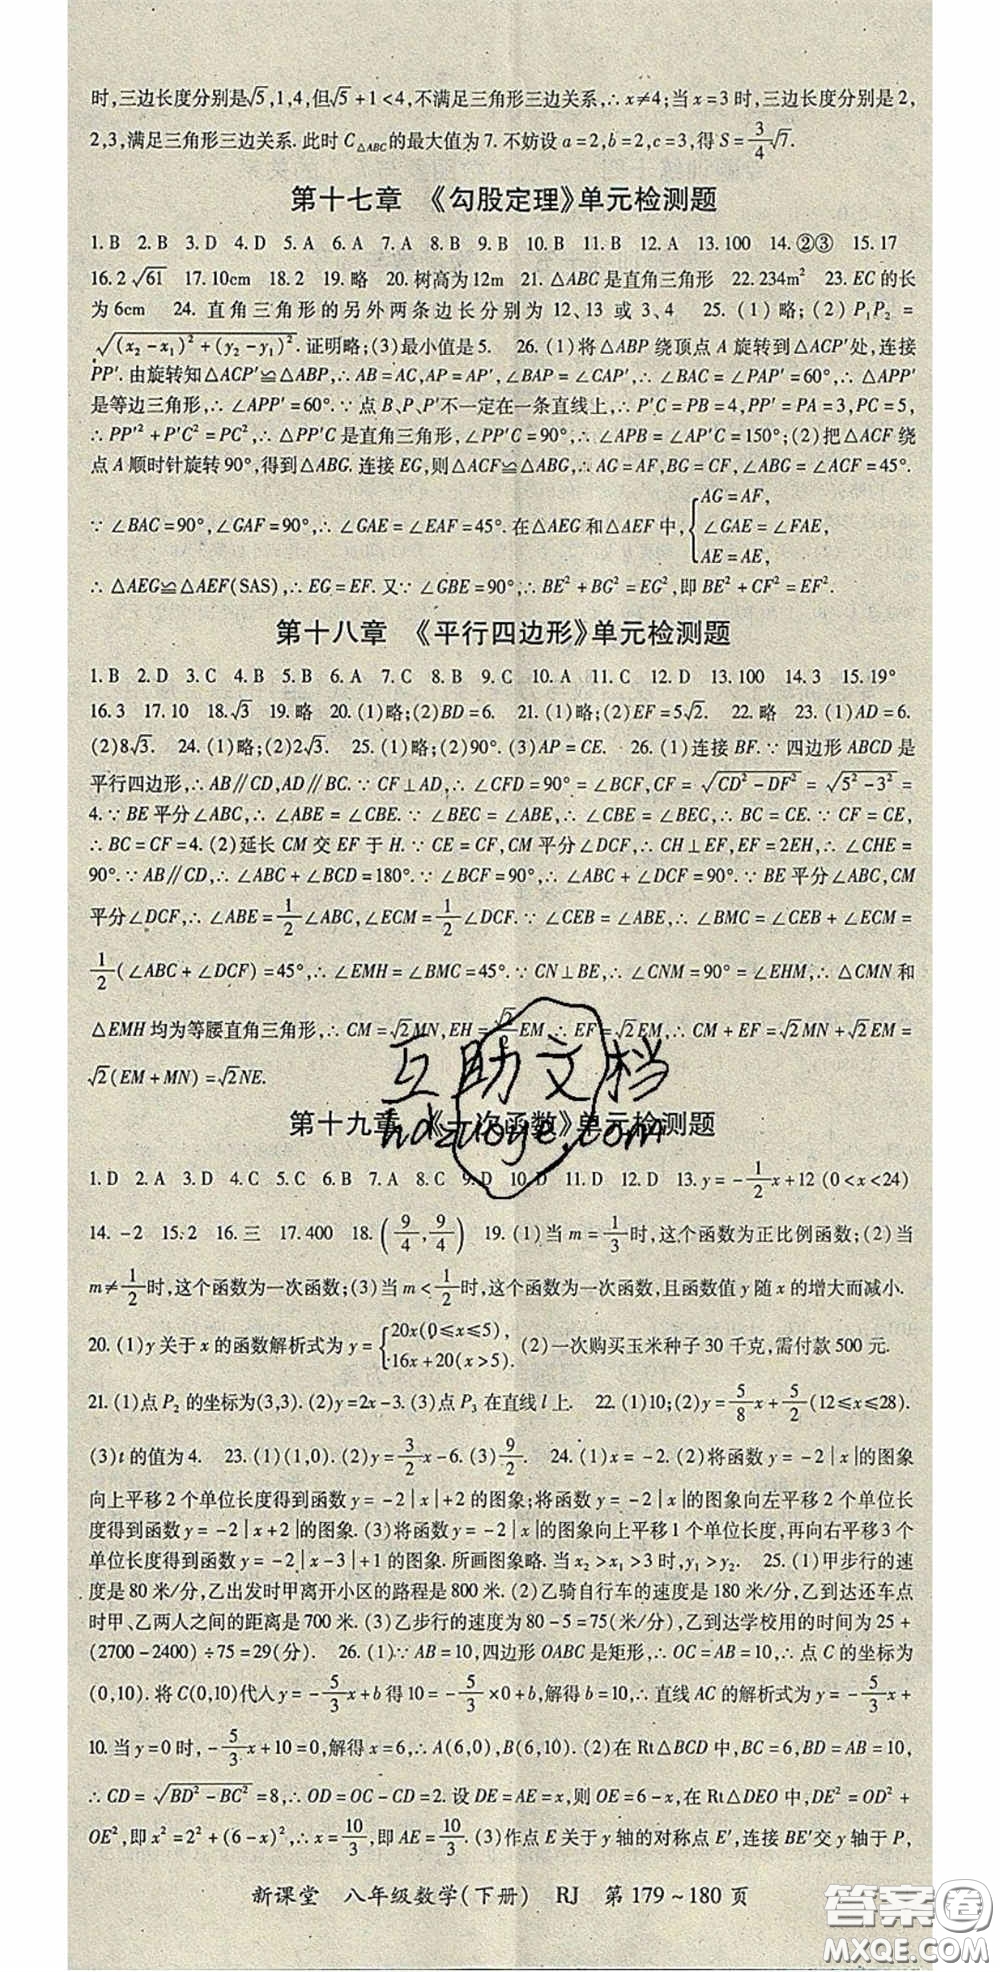 时,三边长度分别是√5,1,4,但√5+1<4,不满足三角形三边关系,∴x≠4;当x=3时,三边长度分别是2,
2,3,满足三角形三边关系.此时C△ABC的最大值为7.不妨设a=2,b=2,c=3,得S=3/4√7.
第十七章 《勾股定理》单元检测题
1.B 2.B 3.D 4.D 5.A 6.A 7.A 8.B 9.B 10.B 11.B 12.A 13.100 14.②③ 15.17
16.2√61 17.10cm 18.2 19.略 20.树高为12m 21.△ABC是直角三角形 22.234m² 23.EC的长
为6cm 24.直角三角形的另外两条边长分别为12、13或3、4 25.(1)略;(2)P₁P₂=
√(x₂-x₁)²+(y₂-y₁)².证明略;(3)最小值是5. 26.(1)将△ABP绕顶点A旋转到△ACP′处,连接
PP′.由旋转知△ACP′≌△ABP,∴AB=AC,AP=AP′,∠BAP=∠CAP′,∴∠BAC=∠PAP′=60°,∴△APP′
是等边三角形,∴∠APP′=60°.∵点B、P、P′不一定在一条直线上,∴P′C=PB=4,PP′=PA=3,PC=5,
∴PP′²+P′C²=PC²,∴△PP′C是直角三角形,∠PP′C=90°,∴∠APB=∠AP′C=150°;(2)把△ACF绕
点A顺时针旋转90°,得到△ABG.连接EG,则△ACF≌△ABG,∴AG=AF,BG=CF,∠ABG=∠ACF=45°.
∵∠BAC=90°,∠GAF=90°,∴∠GAE=∠EAF=45°.在△AEG和△AEF中,{AG=AF,
∠GAE=∠FAE,
AE=AE,
∴△AEG≌△AEF(SAS),∴EG=EF.又∵∠GBE=90°,∴BE²+BG²=EG²,即BE²+CF²=EF².
第十八章 《平行四边形》单元检测题
1.B 2.D 3.C 4.B 5.B 6.A 7.C 8.B 9.C 10.A 11.C 12.D 13.100 14.3 15.19°
16.3 17.10 18.√3 19.略 20.(1)略;(2)BD=6. 21.(1)略;(2)EF=5√2. 22.略 23.(1)AD=6.
(2)8√3. 24.(1)略;(2)2√3. 25.(1)略;(2)90°.(3)AP=CE. 26.(1)连接BF.∵四边形ABCD是
平行四边形,∴AB∥CD,AD∥BC.∵CF⊥AD,∴∠CFD=90°=∠BCF,CF=√CD²-DF²=√5²-3²=
4.∵BE平分∠ABC,∴∠ABE=∠CBE.∵∠BEC=∠ABE,∴∠CBE=∠BEC,∴BC=CE.∵CF=CE,
∴BC=CF=4.(2)延长CM交EF于H.∵CE=CF,CM平分∠DCF,∴CH⊥EF,EF=2EH,∴∠CHE=
90°.∵AB∥CD,∴∠ABC+∠BCD=180°.∵∠BCF=90°,∴∠ABC+∠DCF=90°.∵BE平分∠ABC,CM
平分∠DCF,∴∠ABE=1/2∠ABC,∠ECM=1/2∠DCF.∵∠CEB=∠ABE,∴∠BMC=∠CEB+∠ECM=
1/2(∠ABC+∠DCF)=45°,∴∠EMH=∠BMC=45°.∵CN⊥BE,∴∠CNM=90°=∠EHM,∴△CMN和
△EMH均为等腰直角三角形,∴CM=√2MN,EH=√2/2EM,∴EF=√2EM,∴CM+EF=√2MN+√2EM=
√2(EM+MN)=√2NE.
互助文档
hdzuoye.com
第十九章 《一次函数》单元检测题
1.D 2.A 3.D 4.C 5.A 6.B 7.A 8.C 9.D 10.D 11.D 12.D 13.y=-1/2x+12(0<x<24)
14.-2 15.2 16.三 17.400 18.(9/4,9/4) 19.(1)当m=1/3时,这个函数为正比例函数;(2)当
m≠1/2时,这个函数为一次函数;(3)当m<1/2时,这个函数为一次函数,且函数值y随x的增大而减小.
20.(1)y关于x的函数解析式为y={20x(0≤x≤5),
16x+20(x>5). (2)一次购买玉米种子30千克,需付款500元.
21.(1)点P₂的坐标为(3,3).(2)y=2x-3.(3)点P₃在直线l上. 22.(1)10;(2)y=5/8x+5/2(12≤x≤28).
(3)t的值为4. 23.(1)(1,0).(2)y=3/2x-6.(3)9/2. 24.(1)x=-2.(2)将函数y=-2|x|的图象
向上平移2个单位长度得到函数y=-2|x|+2的图象;将函数y=-2|x|的图象向左平移2个单位长
度得到函数y=-2|x+2|的图象.(3)将函数y=-2|x|的图象向上平移1个单位长度,再向右平移3个
单位长度得到函数y=-2|x-3|+1的图象.所画图象略.当x₂>x₁>3时,y₁>y₂. 25.(1)甲步行的速
度是80米/分,乙出发时甲离开小区的路程是800米.(2)乙骑自行车的速度是180米/分,乙到达还车点
时甲、乙两人之间的距离是700米.(3)乙步行的速度为80-5=75(米/分),乙到达学校用的时间为25+
(2700-2400)÷75=29(分). 26.(1)∵AB=10,四边形OABC是矩形,∴OC=AB=10,∴点C的坐标为
(0,10).将C(0,10)代入y=-5/3x+b得10=-5/3×0+b,解得b=10,∴直线AC的解析式为y=-5/3x+
10.当y=0时,-5/3x+10=0,解得x=6,∴A(6,0),B(6,10).(2)在Rt△BCD中,BC=6,BD=AB=10,
∴CD=√BD²-BC²=8,∴OD=OC-CD=2.设DE=AE=x,则OE=6-x,在Rt△DEO中,DE²=OD²+
OE²,即x²=2²+(6-x)²,∴x=10/3,即AE=10/3.(3)作点E关于y轴的对称点E′,连接BE′交y轴于P,
新课堂 八年级数学(下册) RJ 第179~180页
答案圈
MXQE.COM